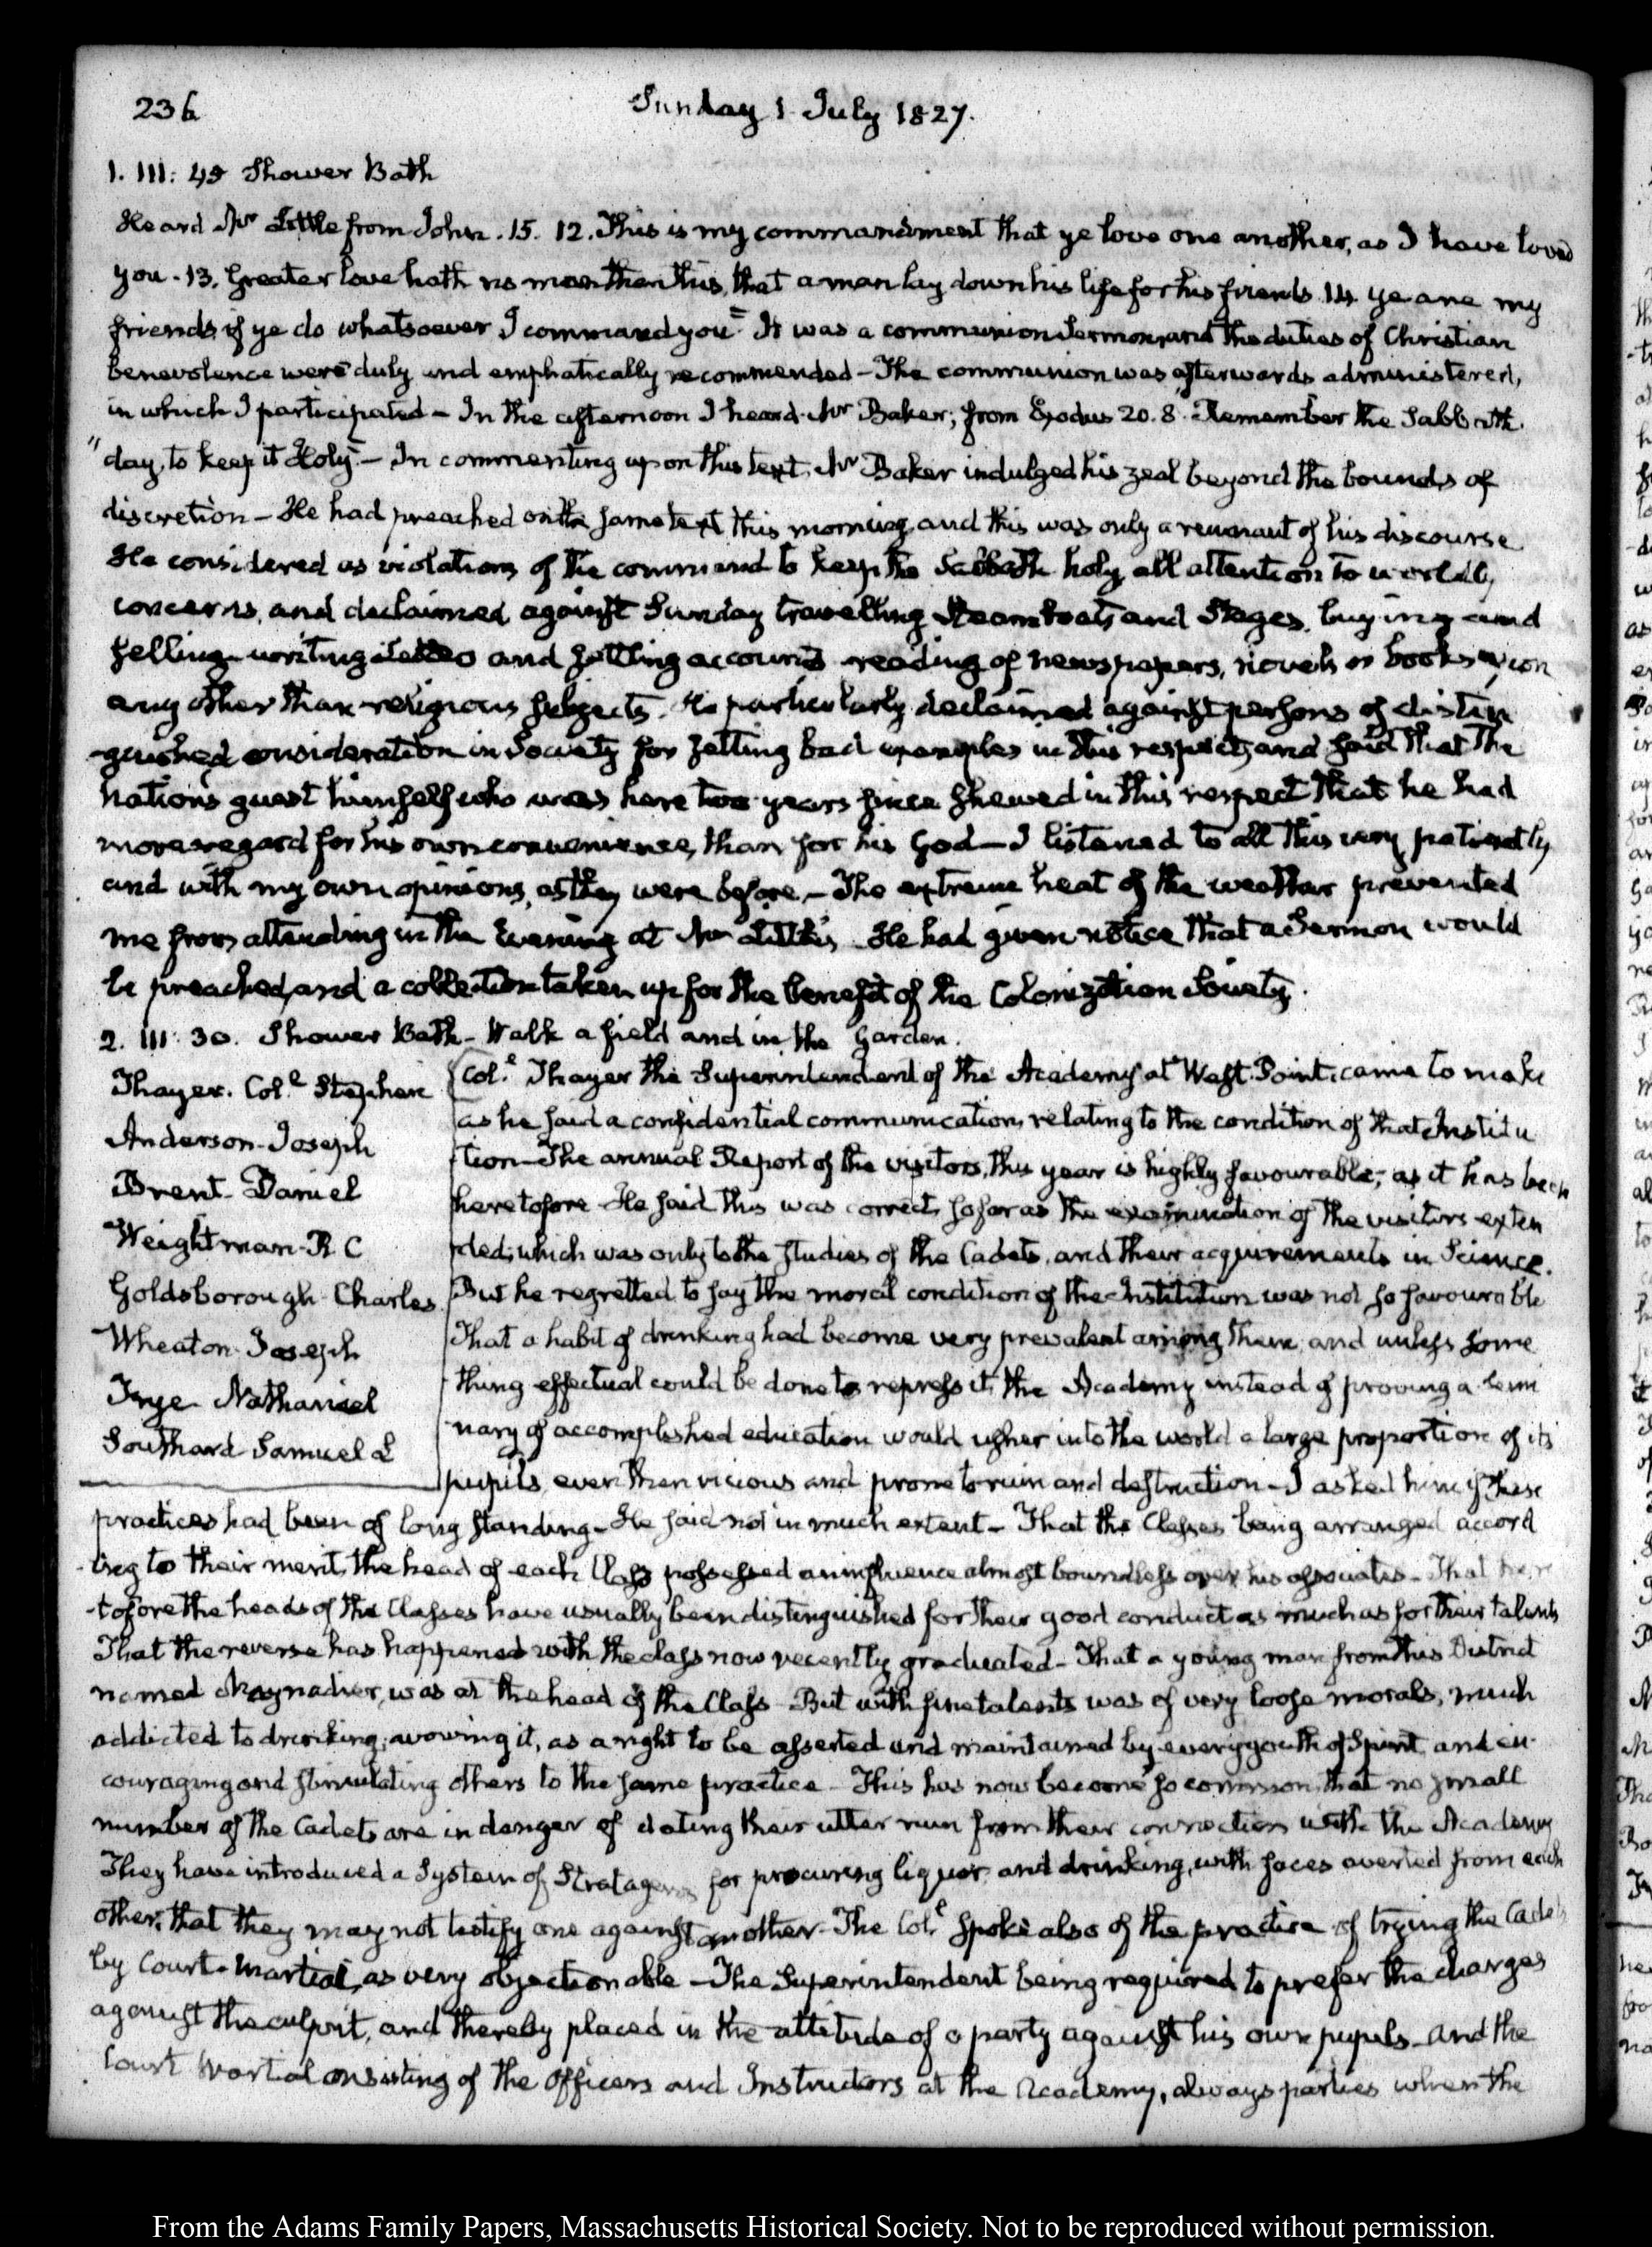 236
Sunday 1 July 1827.
1. III: 45 Shower Bath
Heard Mr Little from John. 15. 12. This is my commandment that ye love one another, as I have loved
you. 13. Greater love hath no man than this, that a man lay down his life for his friends 14. ye are my
friends, if ye do whatsoever I command you" It was a communion Sermon, and the duties of Christian
benevolence were duly and emphatically recommended – The communion was afterwards administered,
in which I participated – In the afternoon I heard Mr Baker; from Exodus 20. 8. Remember the Sabbath
"day, to keep it Holy" – In commenting upon this text Mr Baker indulged his zeal beyond the bounds of
discretion – He had preached on the same text this morning, and this was only a remnant of his discourse
He considered as violations of the command to keep the Sabbath holy all attention to worldly
concerns, and declaimed against Sunday travelling Steamboats and Stages, buying and
selling writing letters and settling accounts reading of newspapers, novels or books upon
any other than religious subjects. He particularly declaimed against persons of distin
-guished consideration in Society for setting bad examples in this respect, and said that the
nation's guest himself who was here two years since shewed in this respect that he had
more regard for his own convenience, than for his God – I listened to all this very patiently
and with my own opinions, as they were before – The extreme heat of the weather prevented
me from attending in the Evening at Mr Little's. He had given notice that a Sermon would
be preached, and a collection taken up for the benefit of the Colonization Society.
2. III: 30. Shower Bath – Walk a field and in the Garden.
Thayer. Coll. Stephen
Anderson – Joseph
Brent – Daniel
Weightman – R C
Goldsborough – Charles
Wheaton – Joseph
Frye – Nathaniel
Southard – Samuel L
Coll. Thayer the Superintendent of the Academy at West-Point, came to make
as he said a confidential communication, relating to the condition of that Institu
tion – The annual Report of the visitors, this year is highly favourable, as it has been
heretofore – He said this was correct, so far as the examination of the visitors exten
ded, which was only to the studies of the Cadets, and their acquirements in Science.
But he regretted to say the moral condition of the Institution was not so favourable
That a habit of drinking had become very prevalent among them, and unless some
thing effectual could be done to repress it, the Academy instead of proving a Semi
nary of accomplished education would usher into the world a large proportion of its
pupils, even then vicious and prone to ruin and destruction – I asked him if these
practices had been of long standing – He said not in much extent – That the Classes being arranged accord
-ing to their merit, the head of each Class possessed an influence almost boundless over his associates – That here
-tofore the heads of the Classes have usually been distinguished for their good conduct as much as for their talents
That the reverse has happened with the class now recently graduated – That a young man from this District
named Maynadier, was at the head of the Class – But with fine talents was of very loose morals, much
addicted to drinking, avowing it, as a right to be asserted and maintained by every youth of Spirit, and en
couraging and stimulating others to the same practice – This has now become so common, that no small
number of the Cadets are in danger of dating their utter ruin from their connection with the Academy
They have introduced a System of Stratagems for procuring liquor, and drinking, with faces averted from each
other, that they may not testify one against another – The Coll. spoke also of the practice of trying the Cadets
by Court-Martial, as very objectionable – The Superintendent being required to prefer the charges
against the culprit, and thereby placed in the attitude of a party against his own pupils – and the
Court Martial consisting of the Officers and Instructors at the Academy, always parties when the
From the Adams Family Papers, Massachusetts Historical Society. Not to be reproduced without permission.